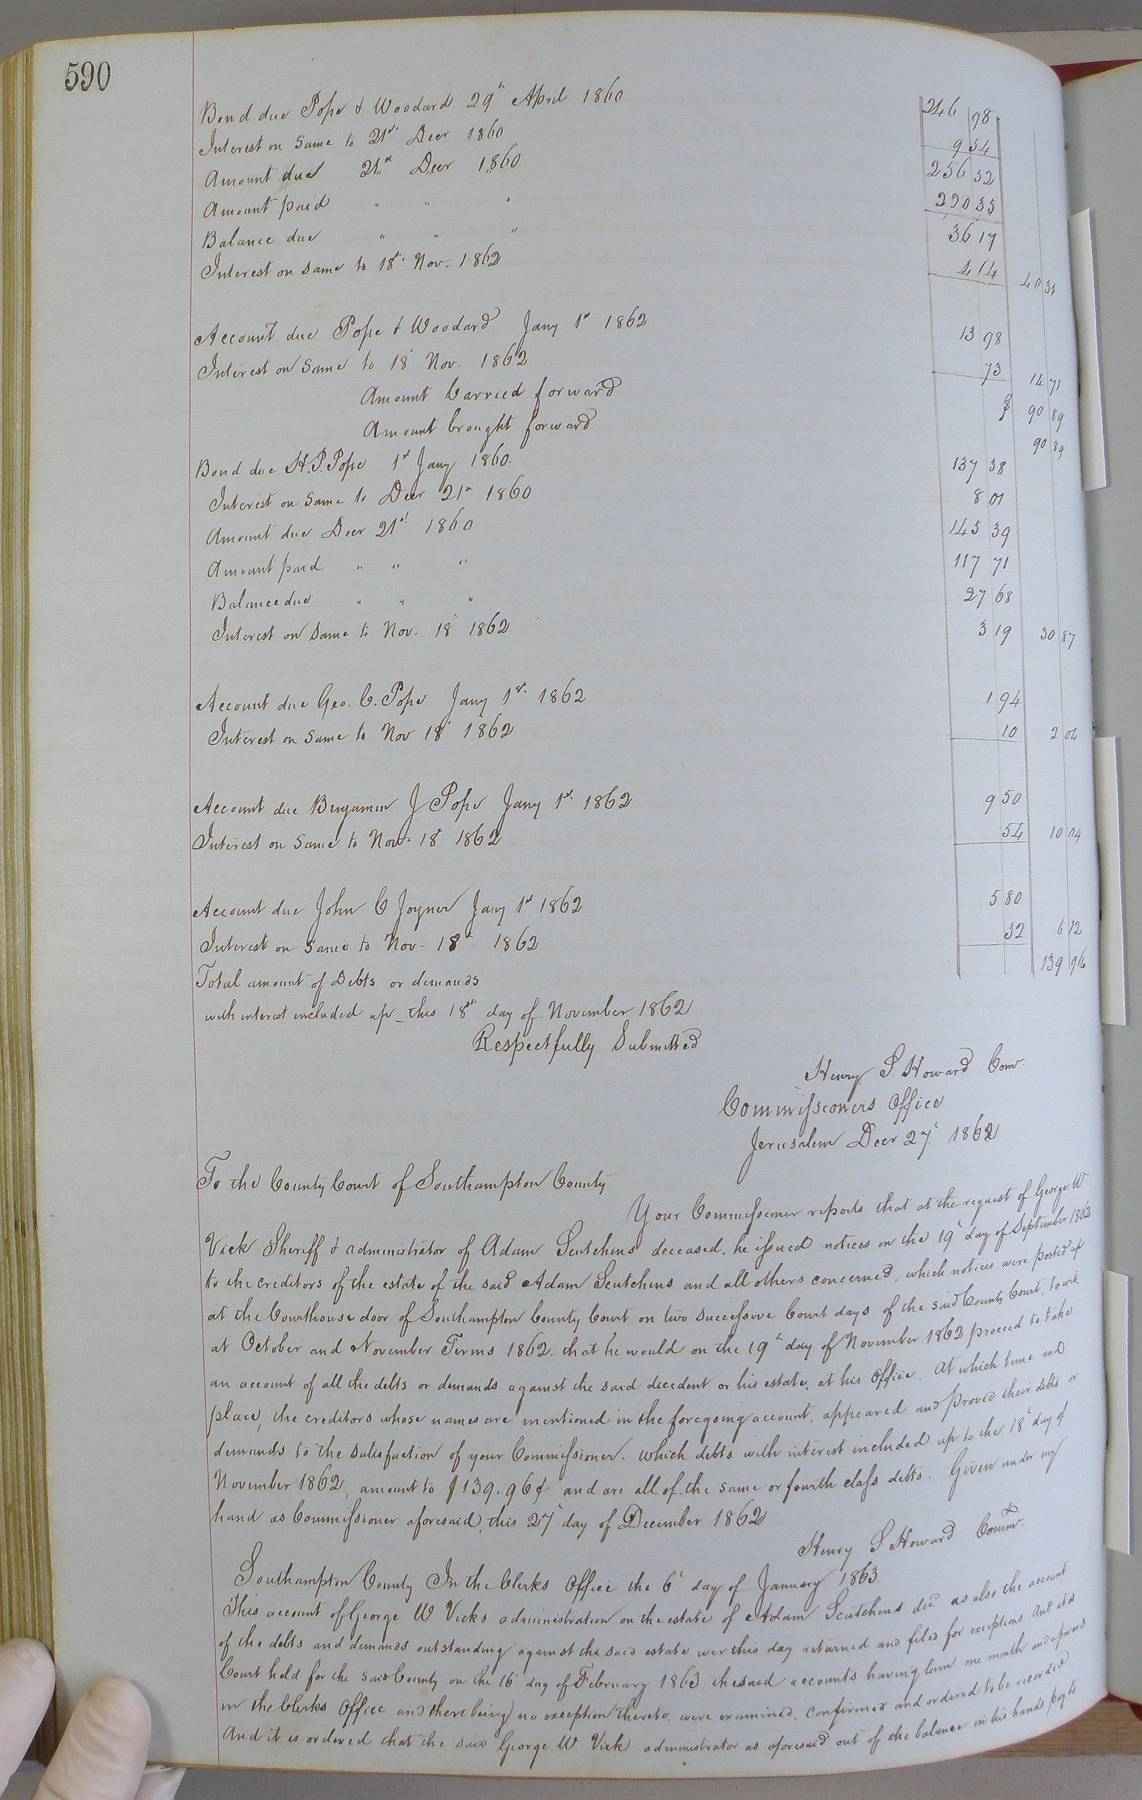 590
Bond due Pope & Woodard 29th April 1860 246 98
Interest on same to 21st Decr 1860 9 54
Amount due 21st Decr 1860 256 52
Amount paid " " " 220 35
Balance due " " " 36 17
Interest on same to 18th Nov. 1862 4 14 40 31
Account due Pope & Woodard Jany 1st 1862 13 98
Interest on same to 18 Nov. 1862 73 14 71
Amount Carried forward $ 90 89
Amount brought forward 90 89
Bond due H.P. Pope 1st Jany 1860. 137 38
Interest on same to Decr 21st 1860 8 01
Amount due Decr 21st 1860 145 39
Amount paid " " " 117 71
Balance due " " " 27 68
Interest on same to Nov. 18 1862 3 19 30 87
Account due Geo. C. Pope Jany 1st. 1862 1 94
Interest on same to Nov 18 1862 10 2 04
Account due Benjamin J Pope Jany 1st. 1862 9 50
Interest on same to Nov. 18 1862 54 10 04
Account due John C Joyner Jany 1st 1862 5 80
Interest on same to Nov. 18th 1862 32 6 12
Total amount of Debts or demands 139 96
with interest included up this 18th day of November 1862
Respectfully Submitted
Henry S. Howard Com.
Commissioners Office
Jerusalem Decr 27th 1862
To the County Court of Southampton County
Your Commissioner reports that at the request of George W
Vick Sheriff & administrator of Adam Scutchens deceased, he issued notices on the 19th day of September 1862
to the creditors of the estate of the said Adam Scutchens and all others concerned, which notices were posted up
at the Courthouse door of Southampton County Court on two successive Court days of the said County Court, to wit,
at October and November Terms 1862. that he would on the 19th day of November 1862 proceed to take
an account of all the debts or demands against the said decedent or his estate, at his office. At which time and
place, the creditors whose names are mentioned in the foregoing account, appeared and proved their debts or
demands to the satisfaction of your Commissioner. which debts with interest included up to the 18th day of
November 1862, amount to $139.96¢ and are all of the same or fourth class debts. Given under my
hand as Commissioner aforesaid, this 27th day of December 1862
Henry S Howard Commr.
Southampton County In the Clerks Office the 6th day of January 1863.
This account of George W Vicks administration on the estate of Adam Scutchens decd as also the account
of the debts and demands outstanding against the said estate wer this day returned and filed for exceptions And at a
Court held for the said County on the 16th day of February 1863, the said accounts having lain one month and upwards
in the Clerks Office and there being no exception thereto, were examined, confirmed and ordered to be recorded
And it is ordered that the said George W Vick administrator as aforesaid out of the balance in his hands pay to